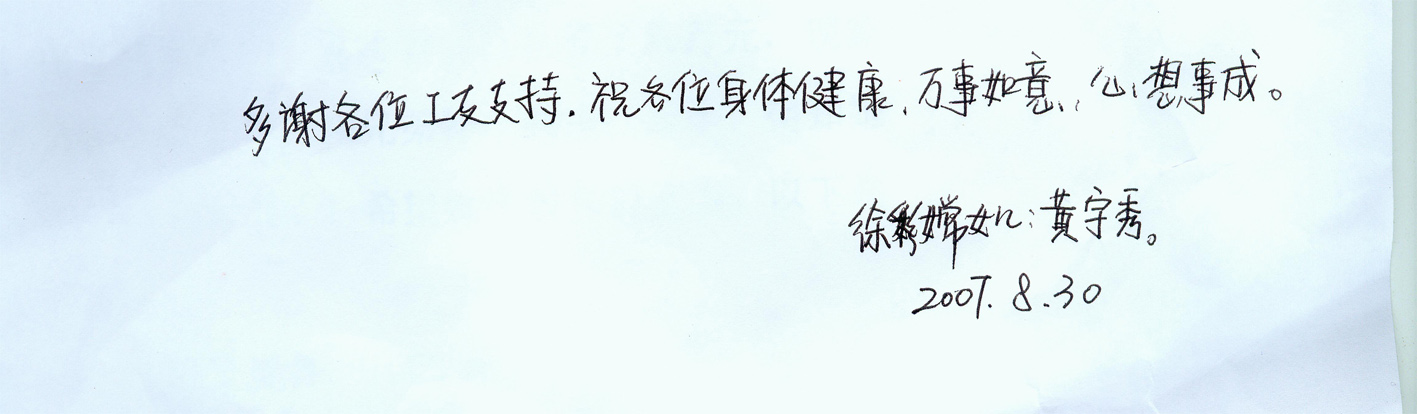 多谢各位工友支持.祝各位身体健康、万事如意、心想事成。
徐彩嫦女儿:黄宇秀。
2007.8.30